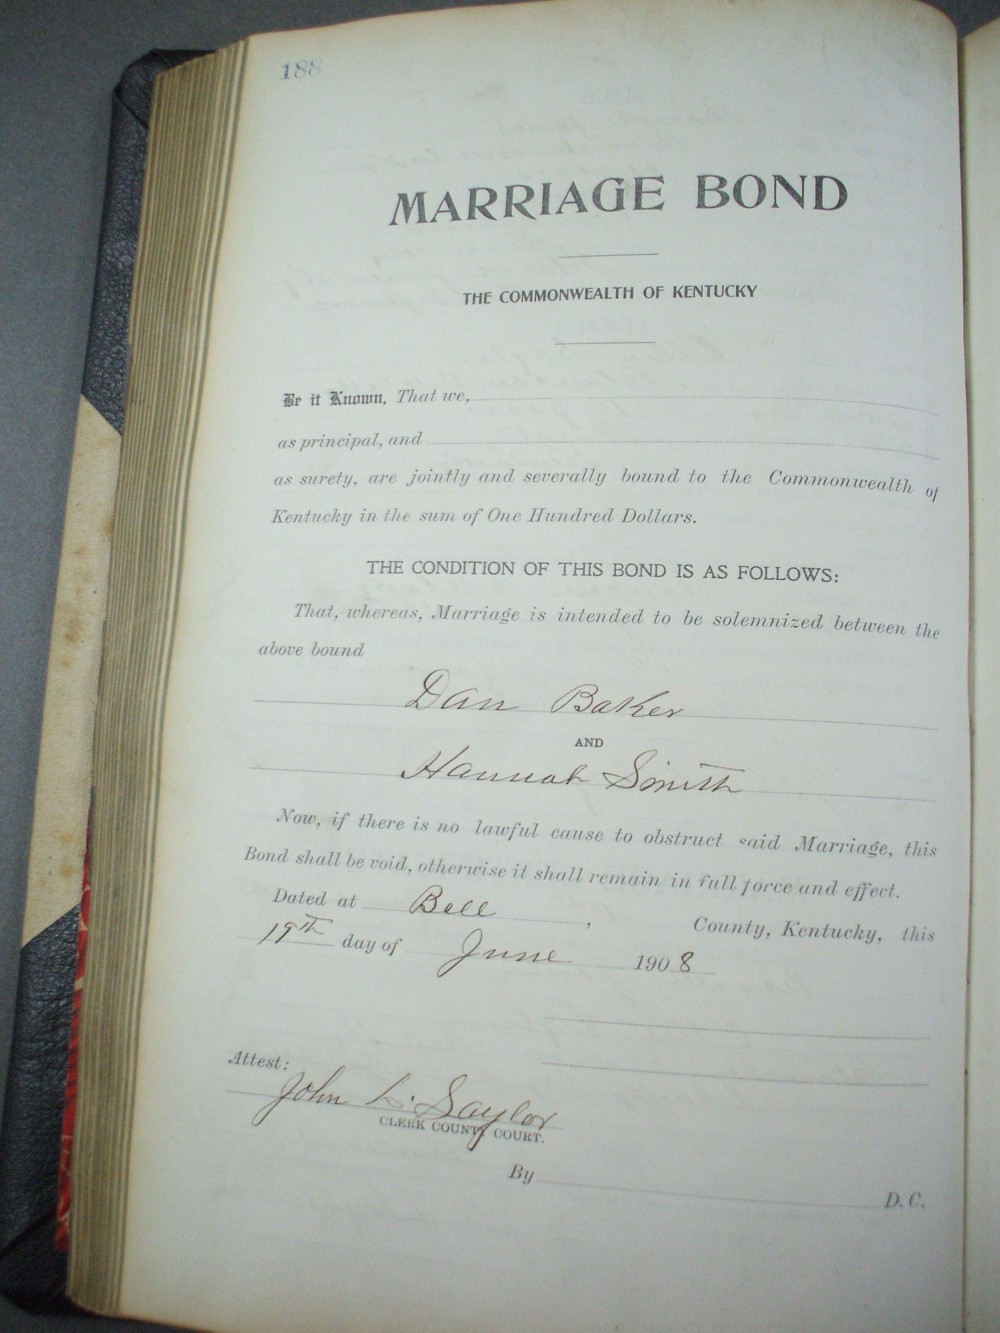 188
MARRIAGE BOND
THE COMMONWEALTH OF KENTUCKY
Be it Known, That we,
as principal, and
as surety, are jointly and severally bound to the Commonwealth of
Kentucky in the sum of One Hundred Dollars.
THE CONDITION OF THIS BOND IS AS FOLLOWS:
That, whereas, Marriage is intended to be solemnized between the
above bound
Dan Baker
AND
Hannah Smith
Now, if there is no lawful cause to obstruct said Marriage, this
Bond shall be void, otherwise it shall remain in full force and effect.
Dated at Bell, County, Kentucky, this
19th day of June 1908
Attest:
John L. Saylor
CLERK COUNTY COURT.
By D. C.